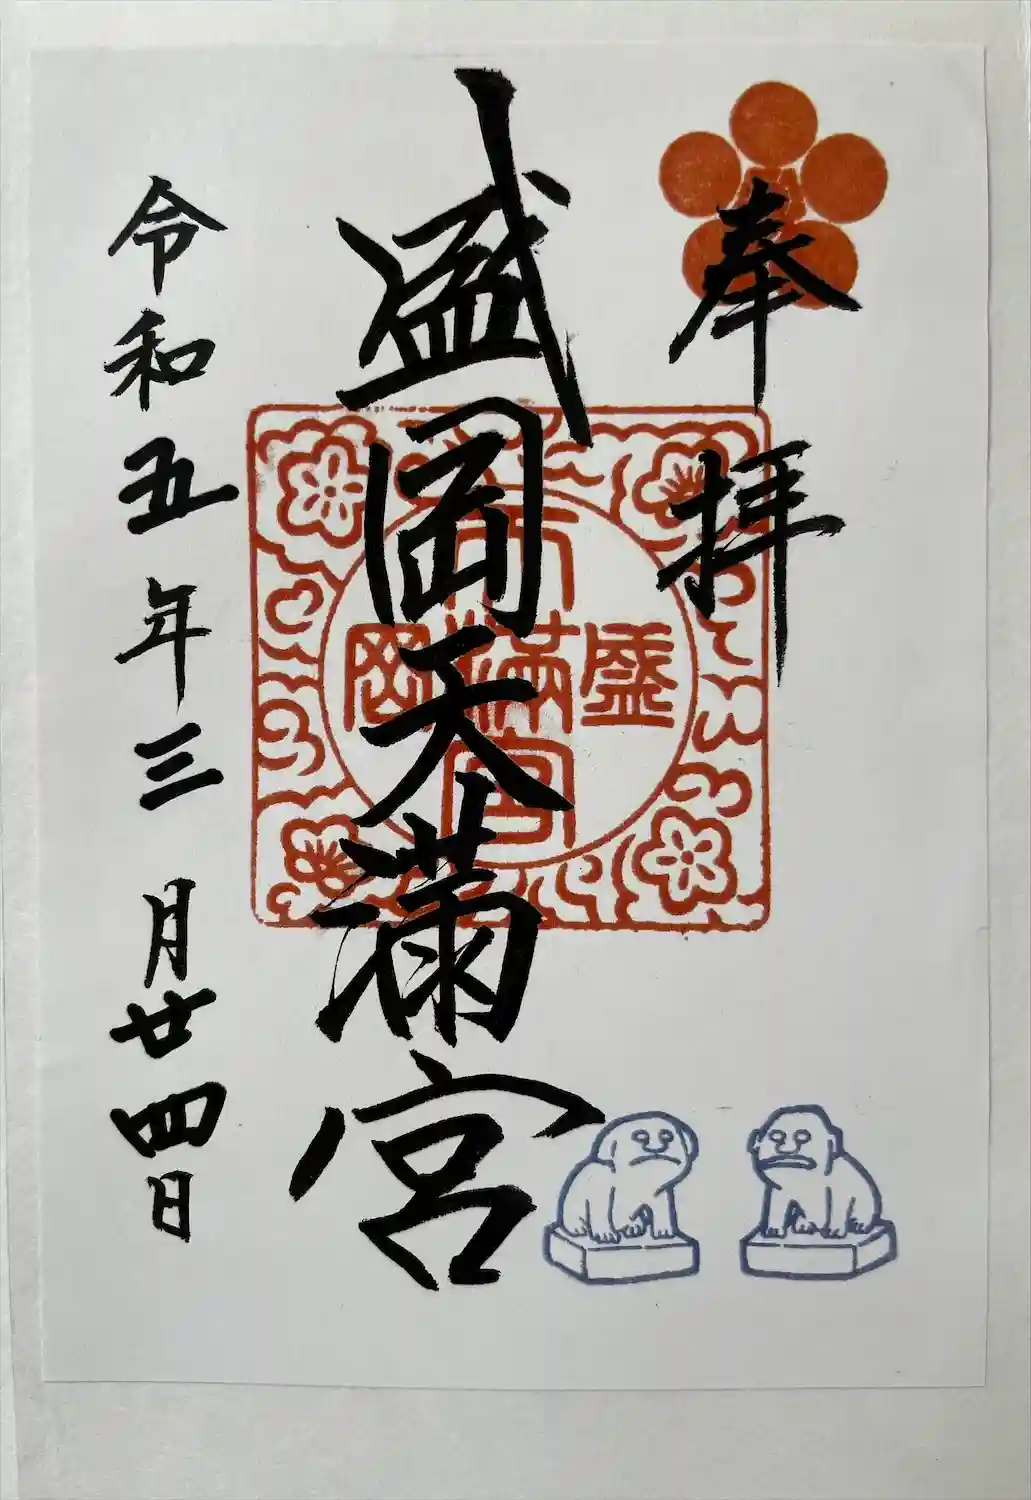 奉拝
盛岡天満宮
令和五年三月廿四日
盛岡
天満宮